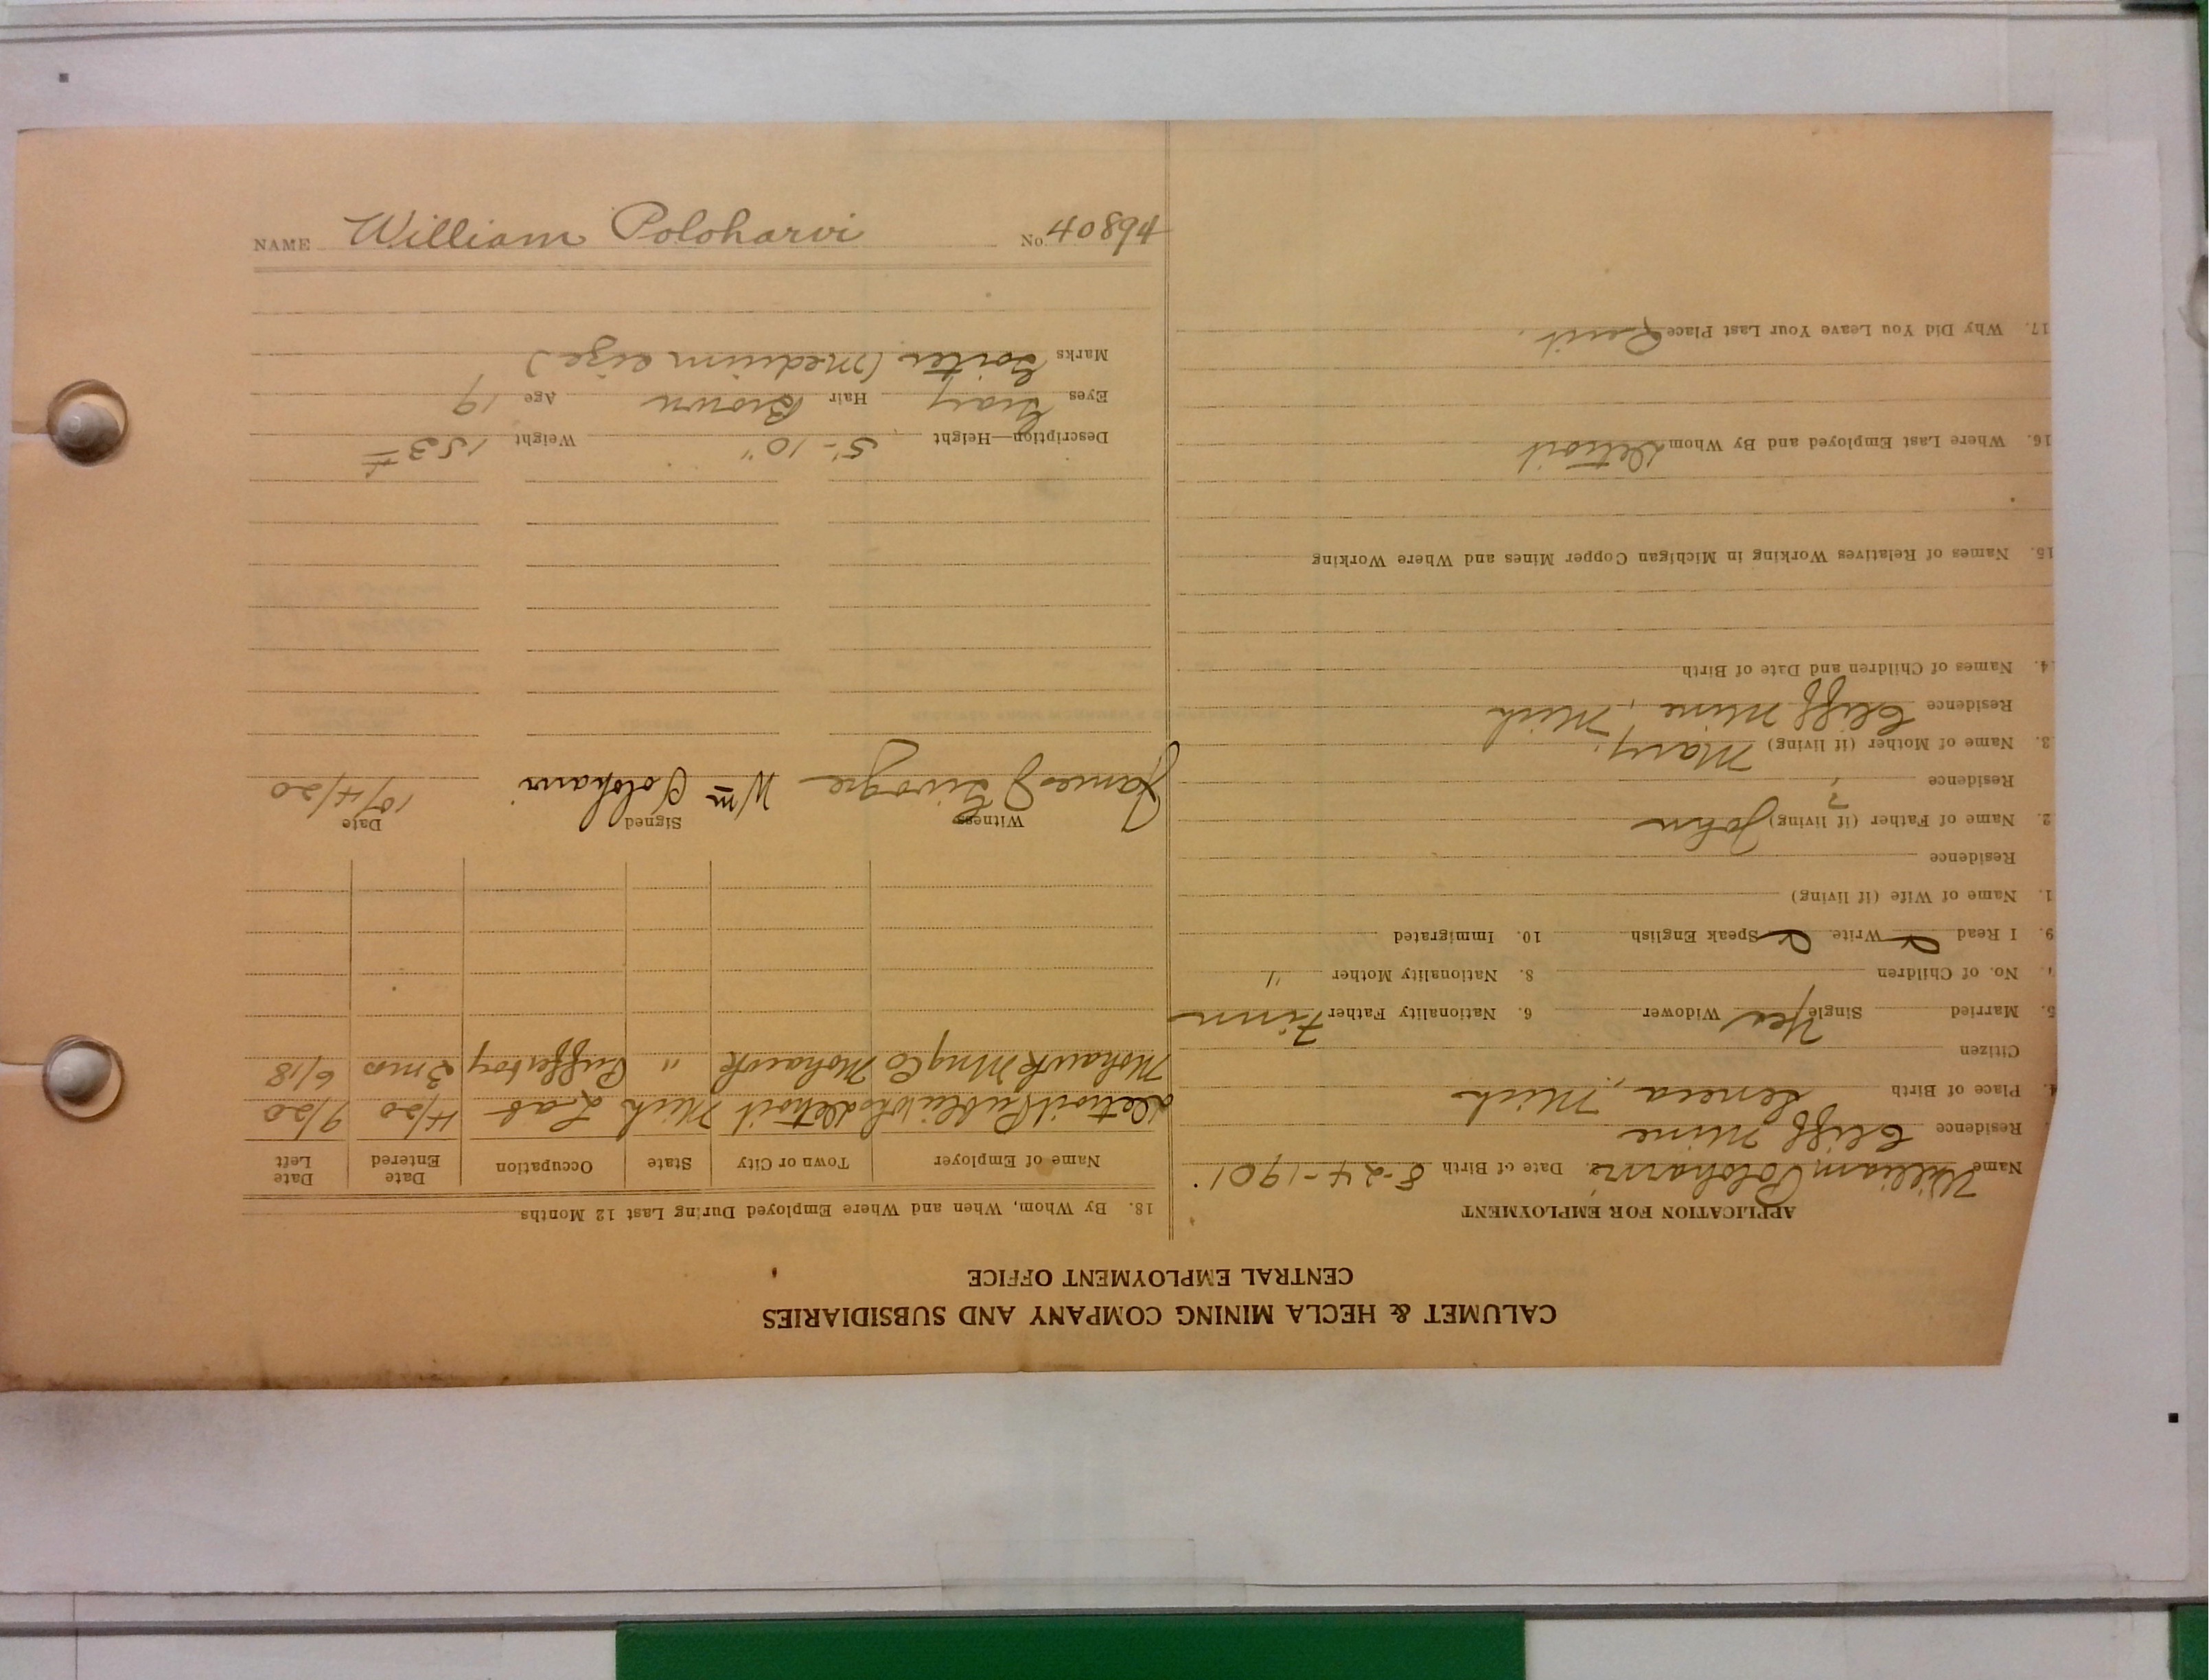 CALUMET & HECLA MINING COMPANY AND SUBSIDIARIES
CENTRAL EMPLOYMENT OFFICE
APPLICATION FOR EMPLOYMENT
Name William Poloharvi Date of Birth 8-24-1901.
Residence Cliff Mine
4. Place of Birth Seneca, Mich
Citizen
5. Married Single Yes Widower 6. Nationality Father Finn
7. No. of Children 8. Nationality Mother "
9. I Read Write Speak English 10. Immigrated
1. Name of Wife (if living)
Residence
2. Name of Father (if living) John
Residence ?
3. Name of Mother (if living) Mary
Residence Cliff Mine, Mich
4. Names of Children and Date of Birth
15. Names of Relatives Working in Michigan Copper Mines and Where Working
16. Where Last Employed and By Whom Detroit
17. Why Did You Leave Your Last Place Quit.
18. By Whom, When and Where Employed During Last 12 Months
Name of Employer Town or City State Occupation Date Entered Date Left
Detroit Public Wks Detroit Mich Lab 4/20 9/20
Mohawk Mng Co Mohawk " Pufferboy 3 mos 6/18
Witness Signed Date
James J Wm Poloharvi 10/4/20
Description—Height 5'-10" Weight 153#
Eyes Gray Hair Brown Age 19
Marks Goiter (Medium size)
NAME William Poloharvi No. 40894